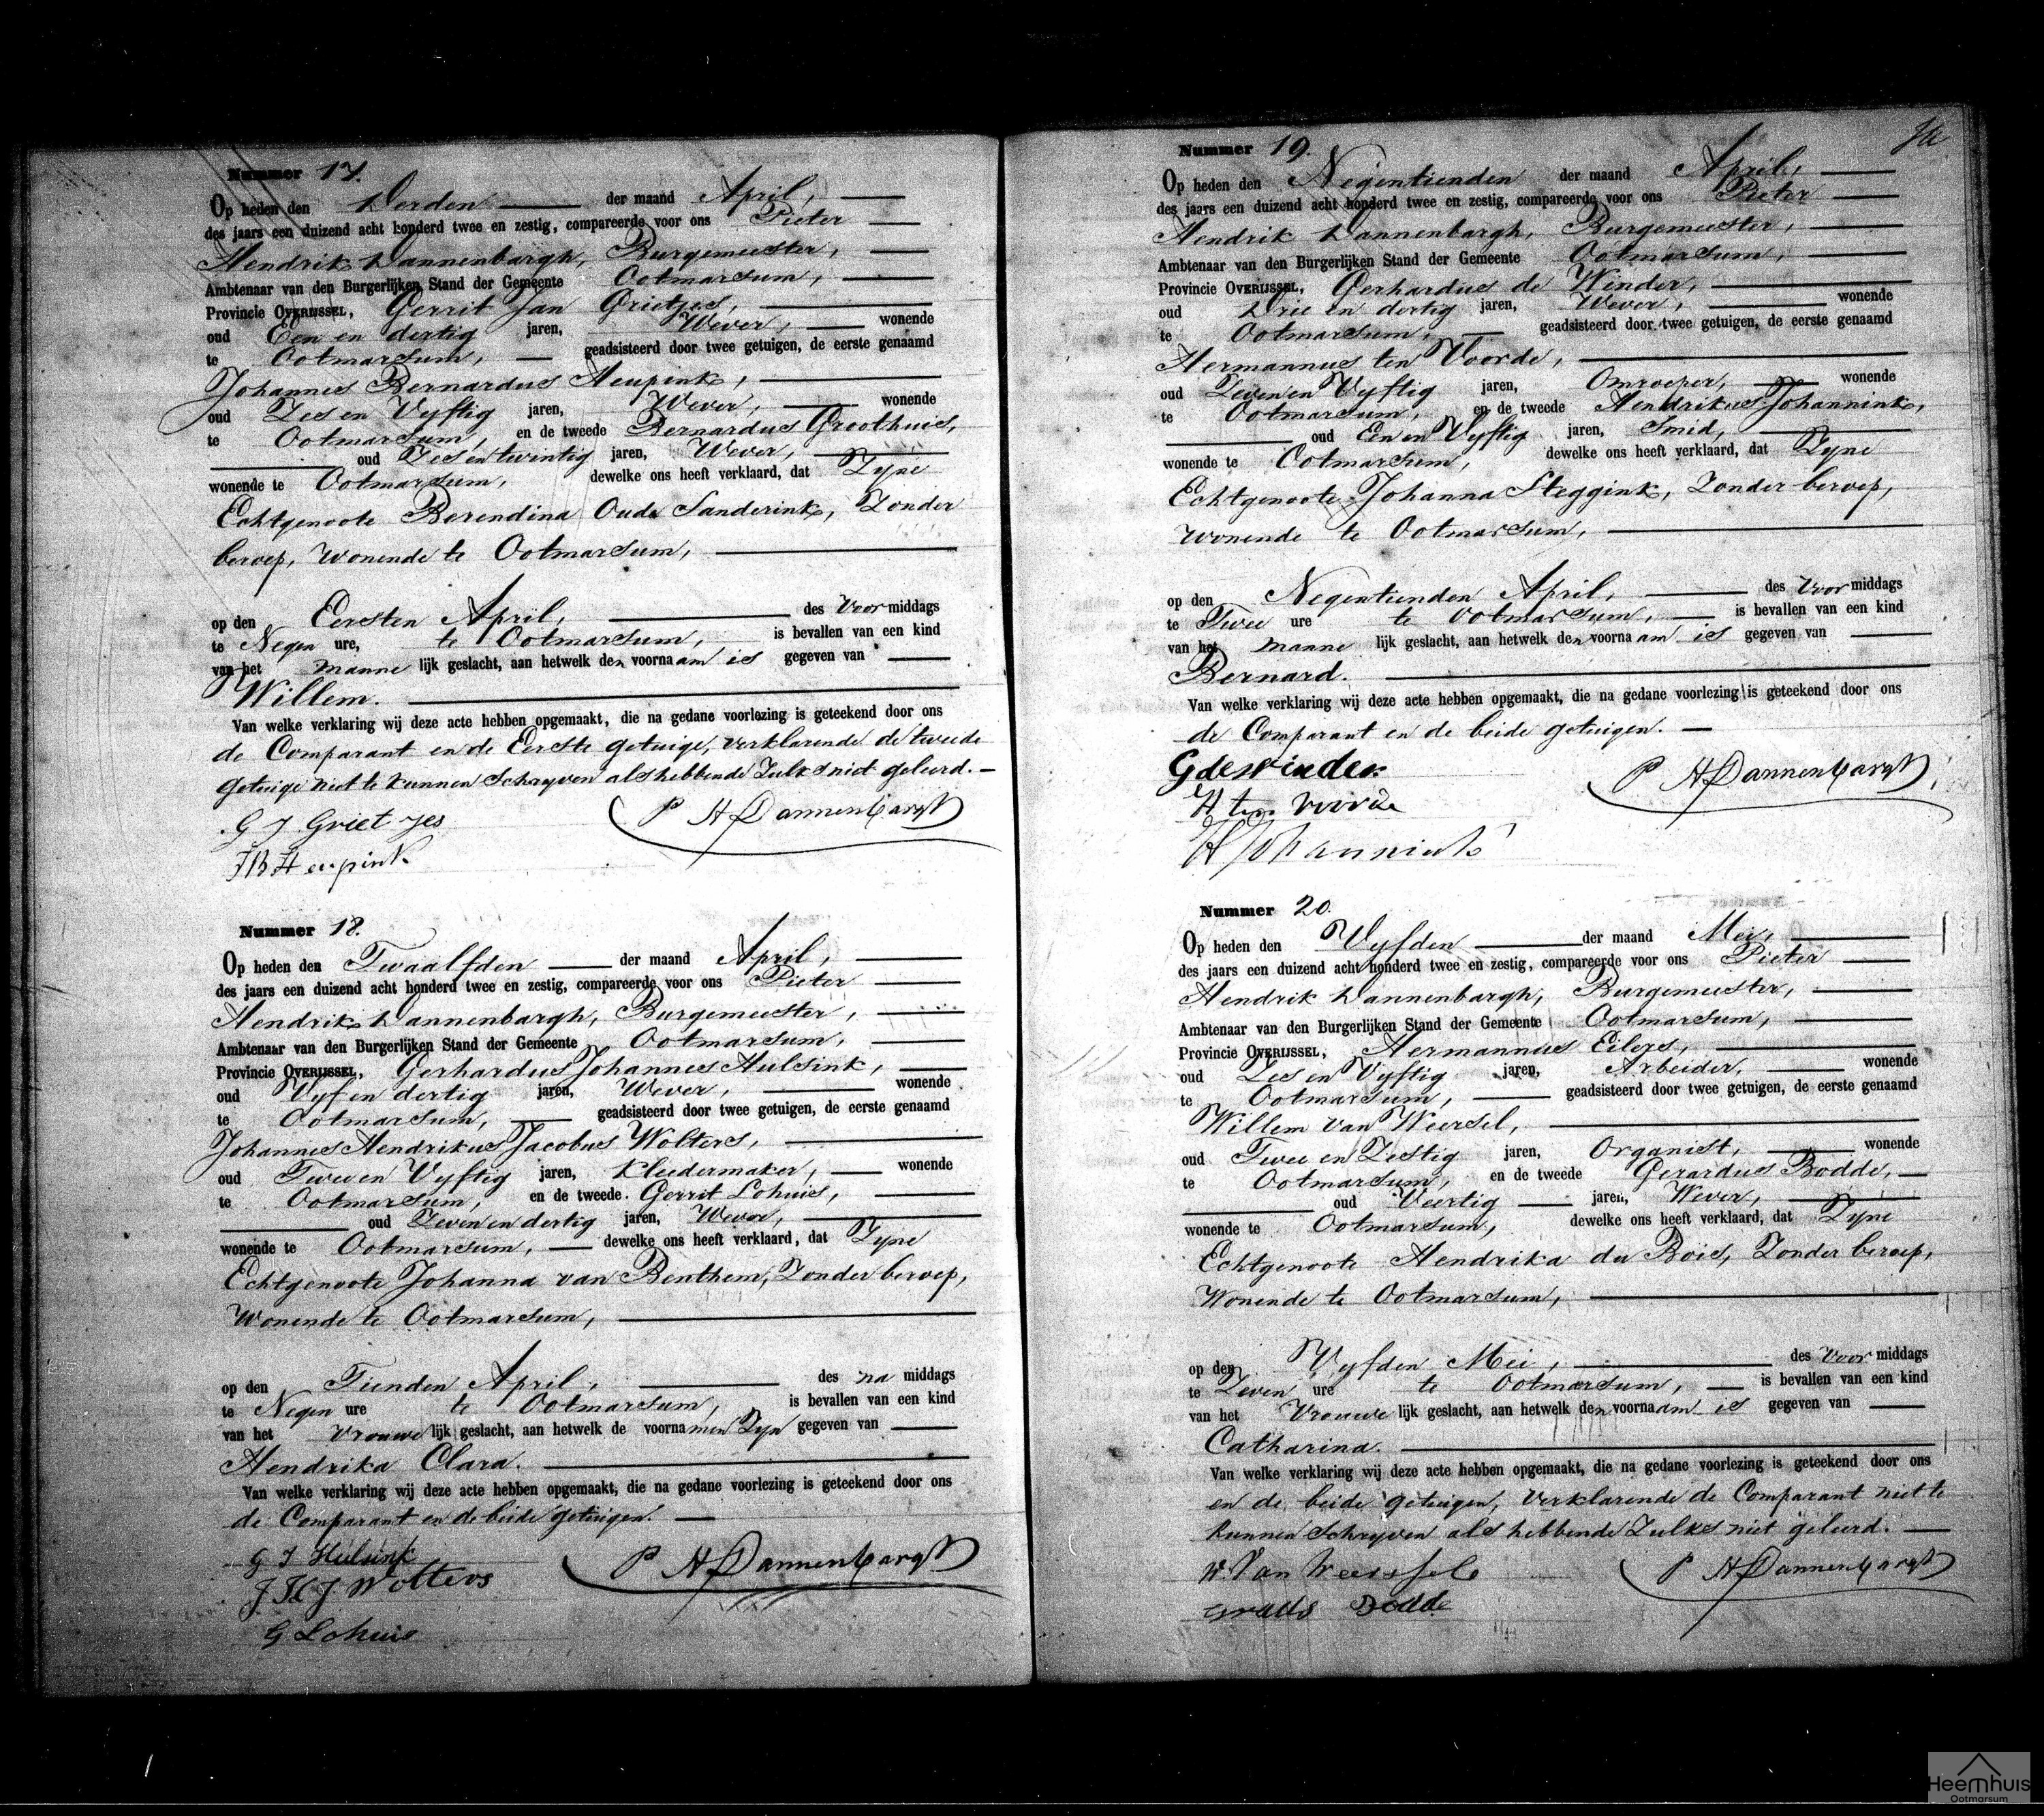 Nummer 17.
Op heden den Derden der maand April,
des jaars een duizend acht honderd twee en zestig, compareerde voor ons Pieter
Hendrik Dannenbargh, Burgemeester,
Ambtenaar van den Burgerlijken Stand der Gemeente Ootmarsum,
Provincie OVERIJSSEL, Gerrit Jan Grietjes,
oud Een en dertig jaren, Wever, wonende
te Ootmarsum, geadsisteerd door twee getuigen, de eerste genaamd
Johannes Bernardus Heupink,
oud Zes en Vyftig jaren, Wever, wonende
te Ootmarsum, en de tweede Bernardus Groothuis,
oud Zes en twintig jaren, Wever,
wonende te Ootmarsum, dewelke ons heeft verklaard, dat Zyne
Echtgenoote Berendina Oude Sanderink, Zonder
beroep, Wonende te Ootmarsum,
op den Eersten April, des Voor middags
te Negen ure, te Ootmarsum, is bevallen van een kind
van het manne lijk geslacht, aan hetwelk den voornaam is gegeven van
Willem.
Van welke verklaring wij deze acte hebben opgemaakt, die na gedane voorlezing is geteekend door ons
de Comparant en de Eerste getuige, verklarende de tweede
getuige niet te kunnen Schryven als hebbende Zulks niet geleerd.
G J Griet jes P H Dannenbargh
JB Heupink
Nummer 18.
Op heden den Twaalfden der maand April,
des jaars een duizend acht honderd twee en zestig, compareerde voor ons Pieter
Hendrik Dannenbargh, Burgemeester,
Ambtenaar van den Burgerlijken Stand der Gemeente Ootmarsum,
Provincie OVERIJSSEL, Gerhardus Johannes Hulsink,
oud Vyf en dertig jaren, Wever, wonende
te Ootmarsum, geadsisteerd door twee getuigen, de eerste genaamd
Johannes Hendrikus Jacobus Wolters,
oud Twee en Vyftig jaren, Kleedermaker, wonende
te Ootmarsum, en de tweede Gerrit Lohuis,
oud Zeven en dertig jaren, Wever,
wonende te Ootmarsum, dewelke ons heeft verklaard, dat Zyne
Echtgenoote Johanna van Benthem, Zonder beroep,
Wonende te Ootmarsum,
op den Tienden April, des na middags
te Negen ure te Ootmarsum, is bevallen van een kind
van het vrouwe lijk geslacht, aan hetwelk de voornamen Zyn gegeven van
Hendrika Clara.
Van welke verklaring wij deze acte hebben opgemaakt, die na gedane voorlezing is geteekend door ons
de Comparant en de beide getuigen.
G J Hulsink P H Dannenbargh
J H J Wolters
G Lohuis
Nummer 19.
Op heden den Negentienden der maand April,
des jaars een duizend acht honderd twee en zestig, compareerde voor ons Pieter
Hendrik Dannenbargh, Burgemeester,
Ambtenaar van den Burgerlijken Stand der Gemeente Ootmarsum,
Provincie OVERIJSSEL, Gerhardus de Winder,
oud Drie en dertig jaren, Wever, wonende
te Ootmarsum, geadsisteerd door twee getuigen, de eerste genaamd
Hermannus ten Voorde,
oud Zeven en Vyftig jaren, Omroeper, wonende
te Ootmarsum, en de tweede Hendrikus Johannink,
oud Een en Vyftig jaren, Smid,
wonende te Ootmarsum, dewelke ons heeft verklaard, dat Zyne
Echtgenoote Johanna Steggink, Zonder beroep,
Wonende te Ootmarsum,
op den Negentienden April, des Voor middags
te Twee ure te Ootmarsum, is bevallen van een kind
van het manne lijk geslacht, aan hetwelk den voornaam is gegeven van
Bernard.
Van welke verklaring wij deze acte hebben opgemaakt, die na gedane voorlezing is geteekend door ons
de Comparant en de beide getuigen.
G de Winder P H Dannenbargh
H ten voorde
H Johannink
Nummer 20.
Op heden den Vyfden der maand Mei,
des jaars een duizend acht honderd twee en zestig, compareerde voor ons Pieter
Hendrik Dannenbargh, Burgemeester,
Ambtenaar van den Burgerlijken Stand der Gemeente Ootmarsum,
Provincie OVERIJSSEL, Hermannus Eilers,
oud Zes en Vyftig jaren, Arbeider, wonende
te Ootmarsum, geadsisteerd door twee getuigen, de eerste genaamd
Willem van Weersel,
oud Twee en Zestig jaren, Organist, wonende
te Ootmarsum, en de tweede Gerardus Bodde,
oud Veertig jaren, Wever,
wonende te Ootmarsum, dewelke ons heeft verklaard, dat Zyne
Echtgenoote Hendrika du Bois, Zonder beroep,
Wonende te Ootmarsum,
op den Vyfden Mei, des Voor middags
te Zeven ure te Ootmarsum, is bevallen van een kind
van het Vrouwe lijk geslacht, aan hetwelk den voornaam is gegeven van
Catharina.
Van welke verklaring wij deze acte hebben opgemaakt, die na gedane voorlezing is geteekend door ons
en de beide getuigen, verklarende de Comparant niet te
kunnen Schryven als hebbende Zulks niet geleerd.
W. Van Weersel P H Dannenbargh
Bodde
Heemhuis
Ootmarsum